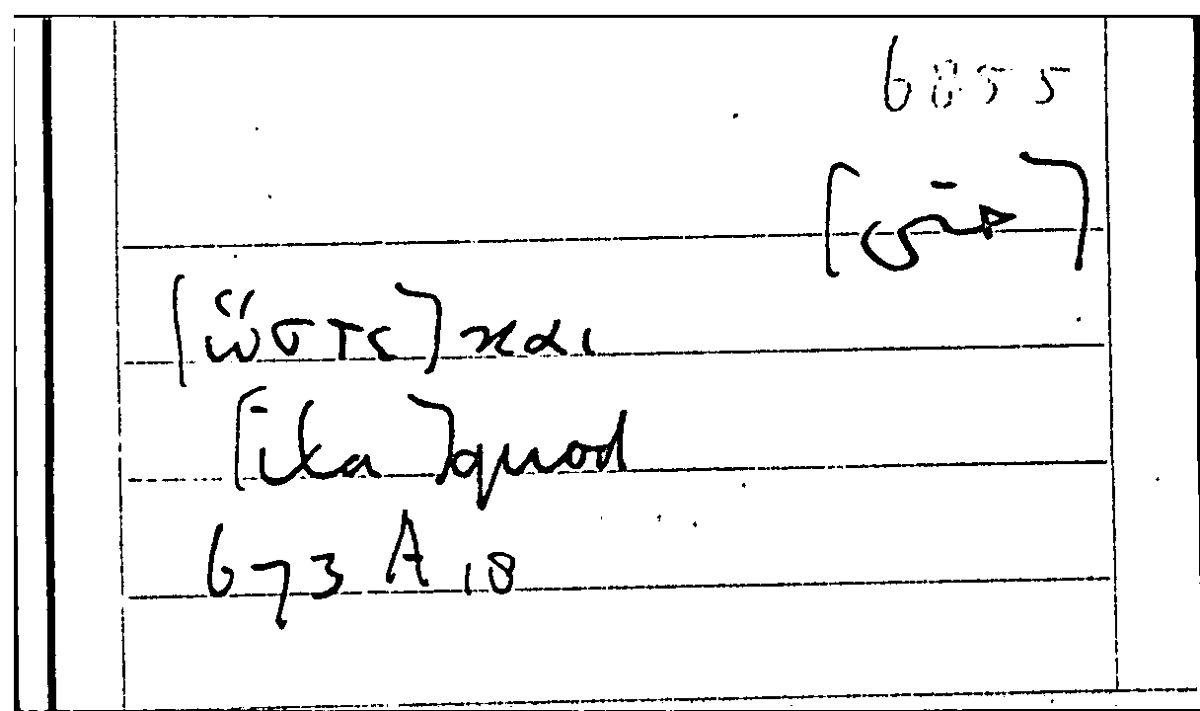 6855
[ὥστε] και
[ita] quod
673 A 18